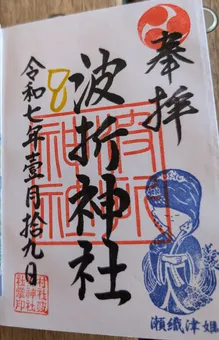 奉拝
波折神社
令和七年壹月拾九日
瀬織津姫